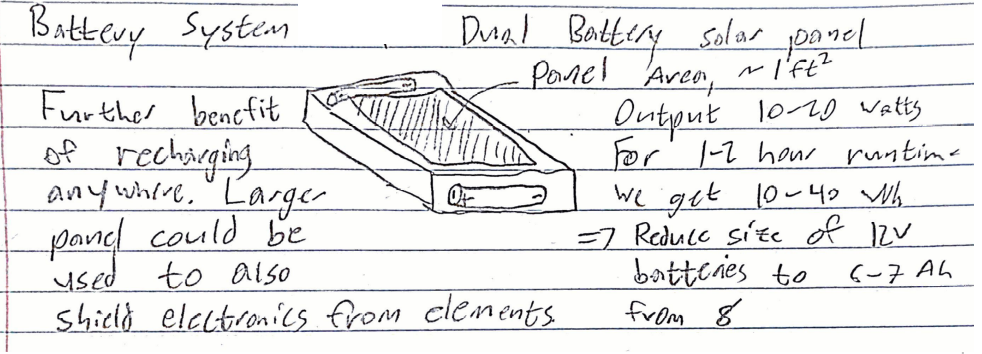 Battery System
Dual Battery solar panel
panel Area, ~ 1 ft²
Further benefit
of recharging
anywhere. Larger
panel could be
used to also
shield electronics from elements.
Output 10-20 watts
For 1-2 hour runtime
we get 10-40 Wh
=> Reduce size of 12V
batteries to 6-7 Ah
from 8
+ -